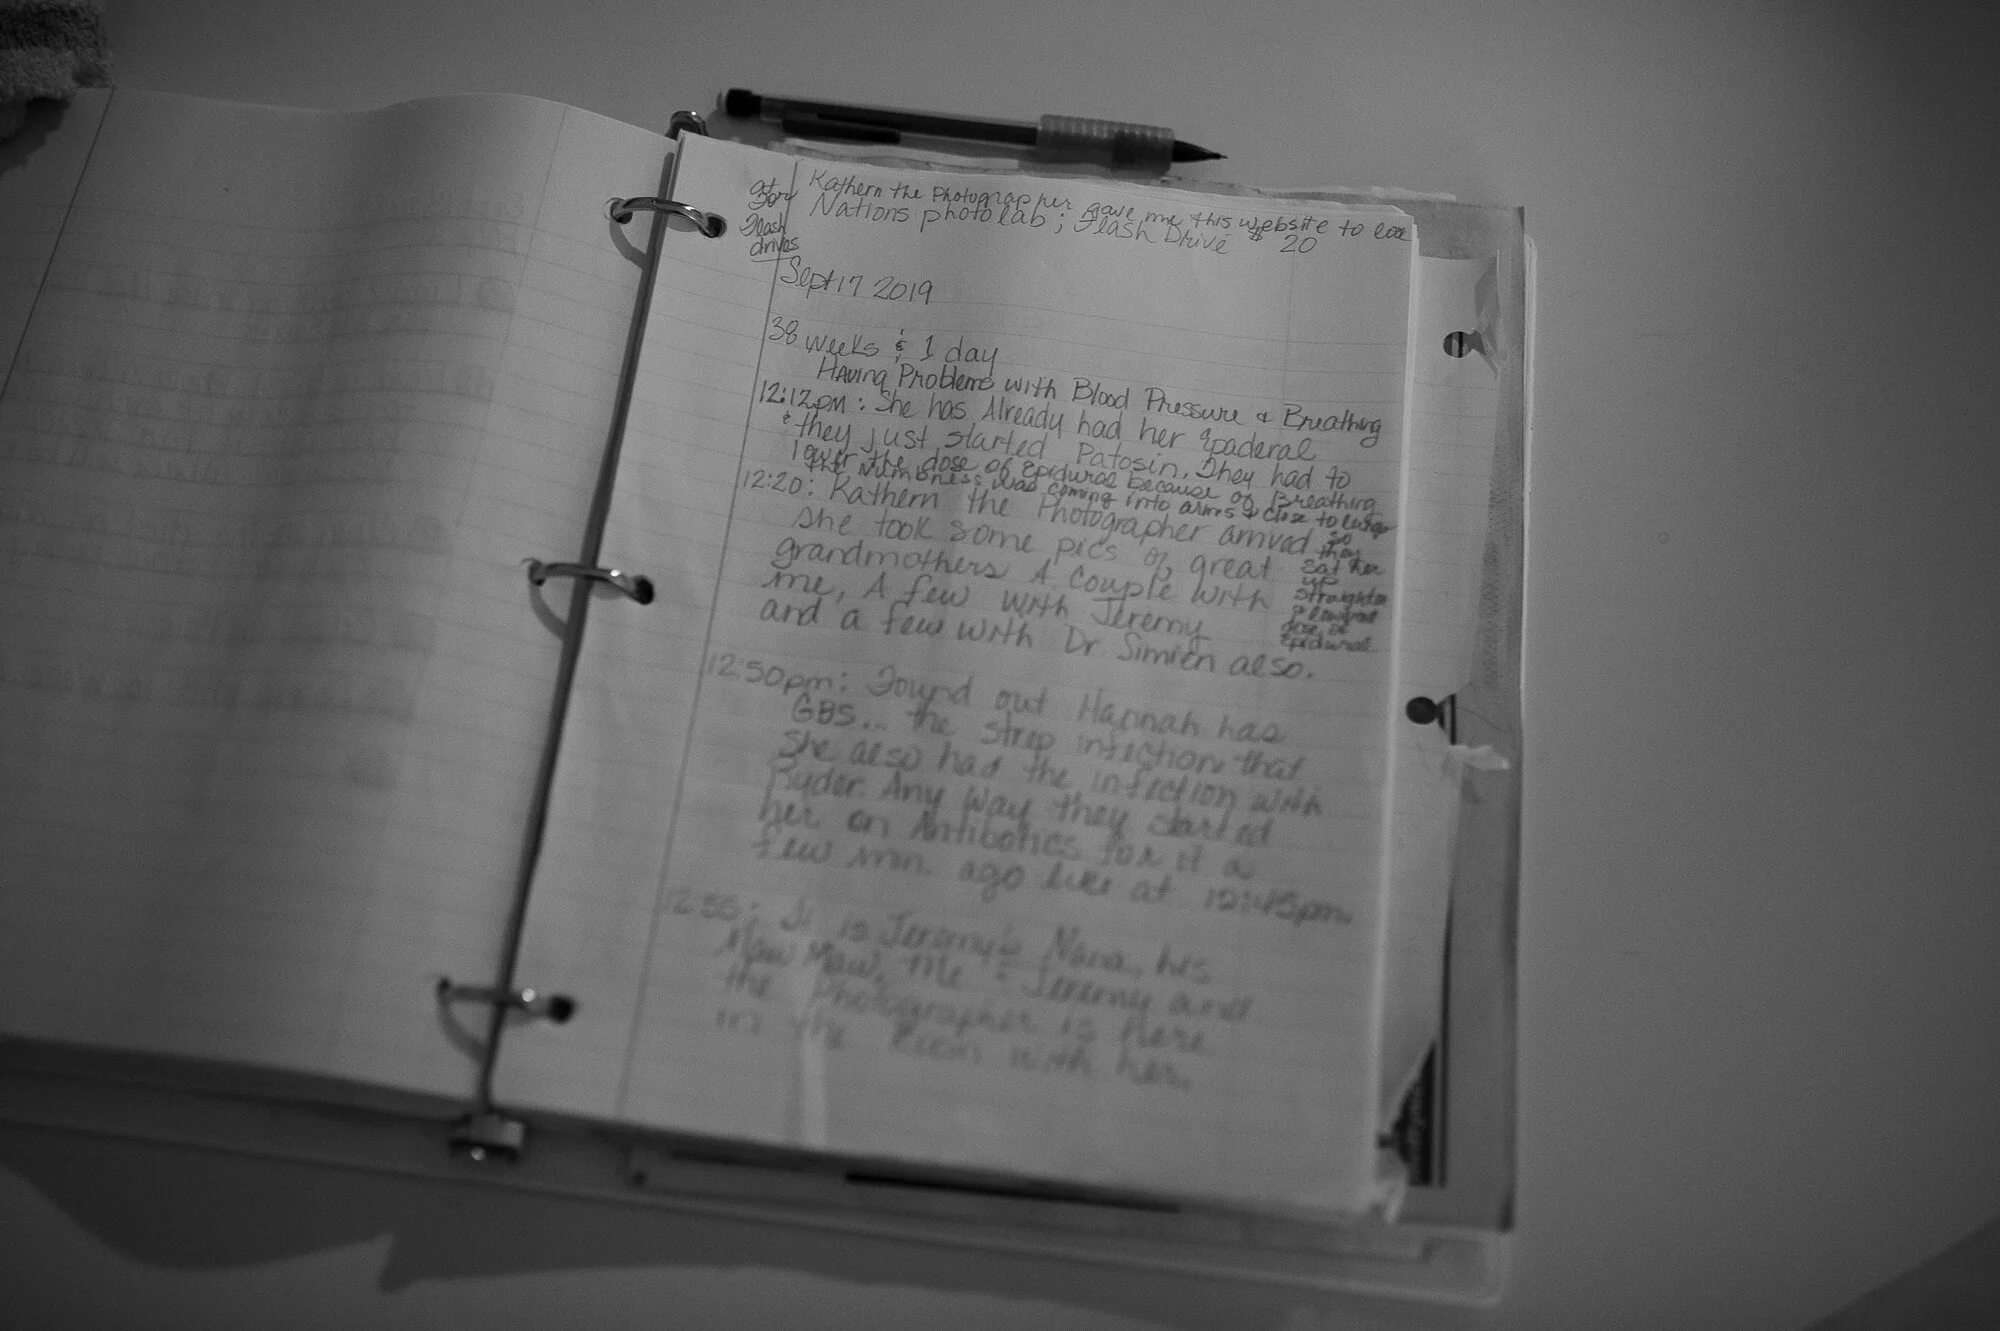 at
for
Flash
drives
Kathern the Photographer gave me this website to
Nations photo lab; Flash Drive $20
Sept 17 2019
38 weeks & 1 day
Having Problems with Blood Pressure & Breathing
12:12pm: She has Already had her Epaderal
& they just started Patosin. They had to
lower the dose of Epidural because of Breathing
the Numbness was coming into arms & close to lungs
so
they
sat her
up
straighter
& lowered
dose of
Epidural
12:20: Kathern the Photographer arrived
she took some pics of great
grandmothers A couple with
me, A few with Jeremy
and a few with Dr. Simien also.
12:50pm: Found out Hannah has
GBS... the strep infection that
she also had the infection with
Ryder. Any way they started
her on Antibotics for it a
few min. ago like at 12:45pm.
12:55: It is Jeremy's Nana, his
Maw Maw, Me & Jeremy and
the Photographer is here
in the Room with her.